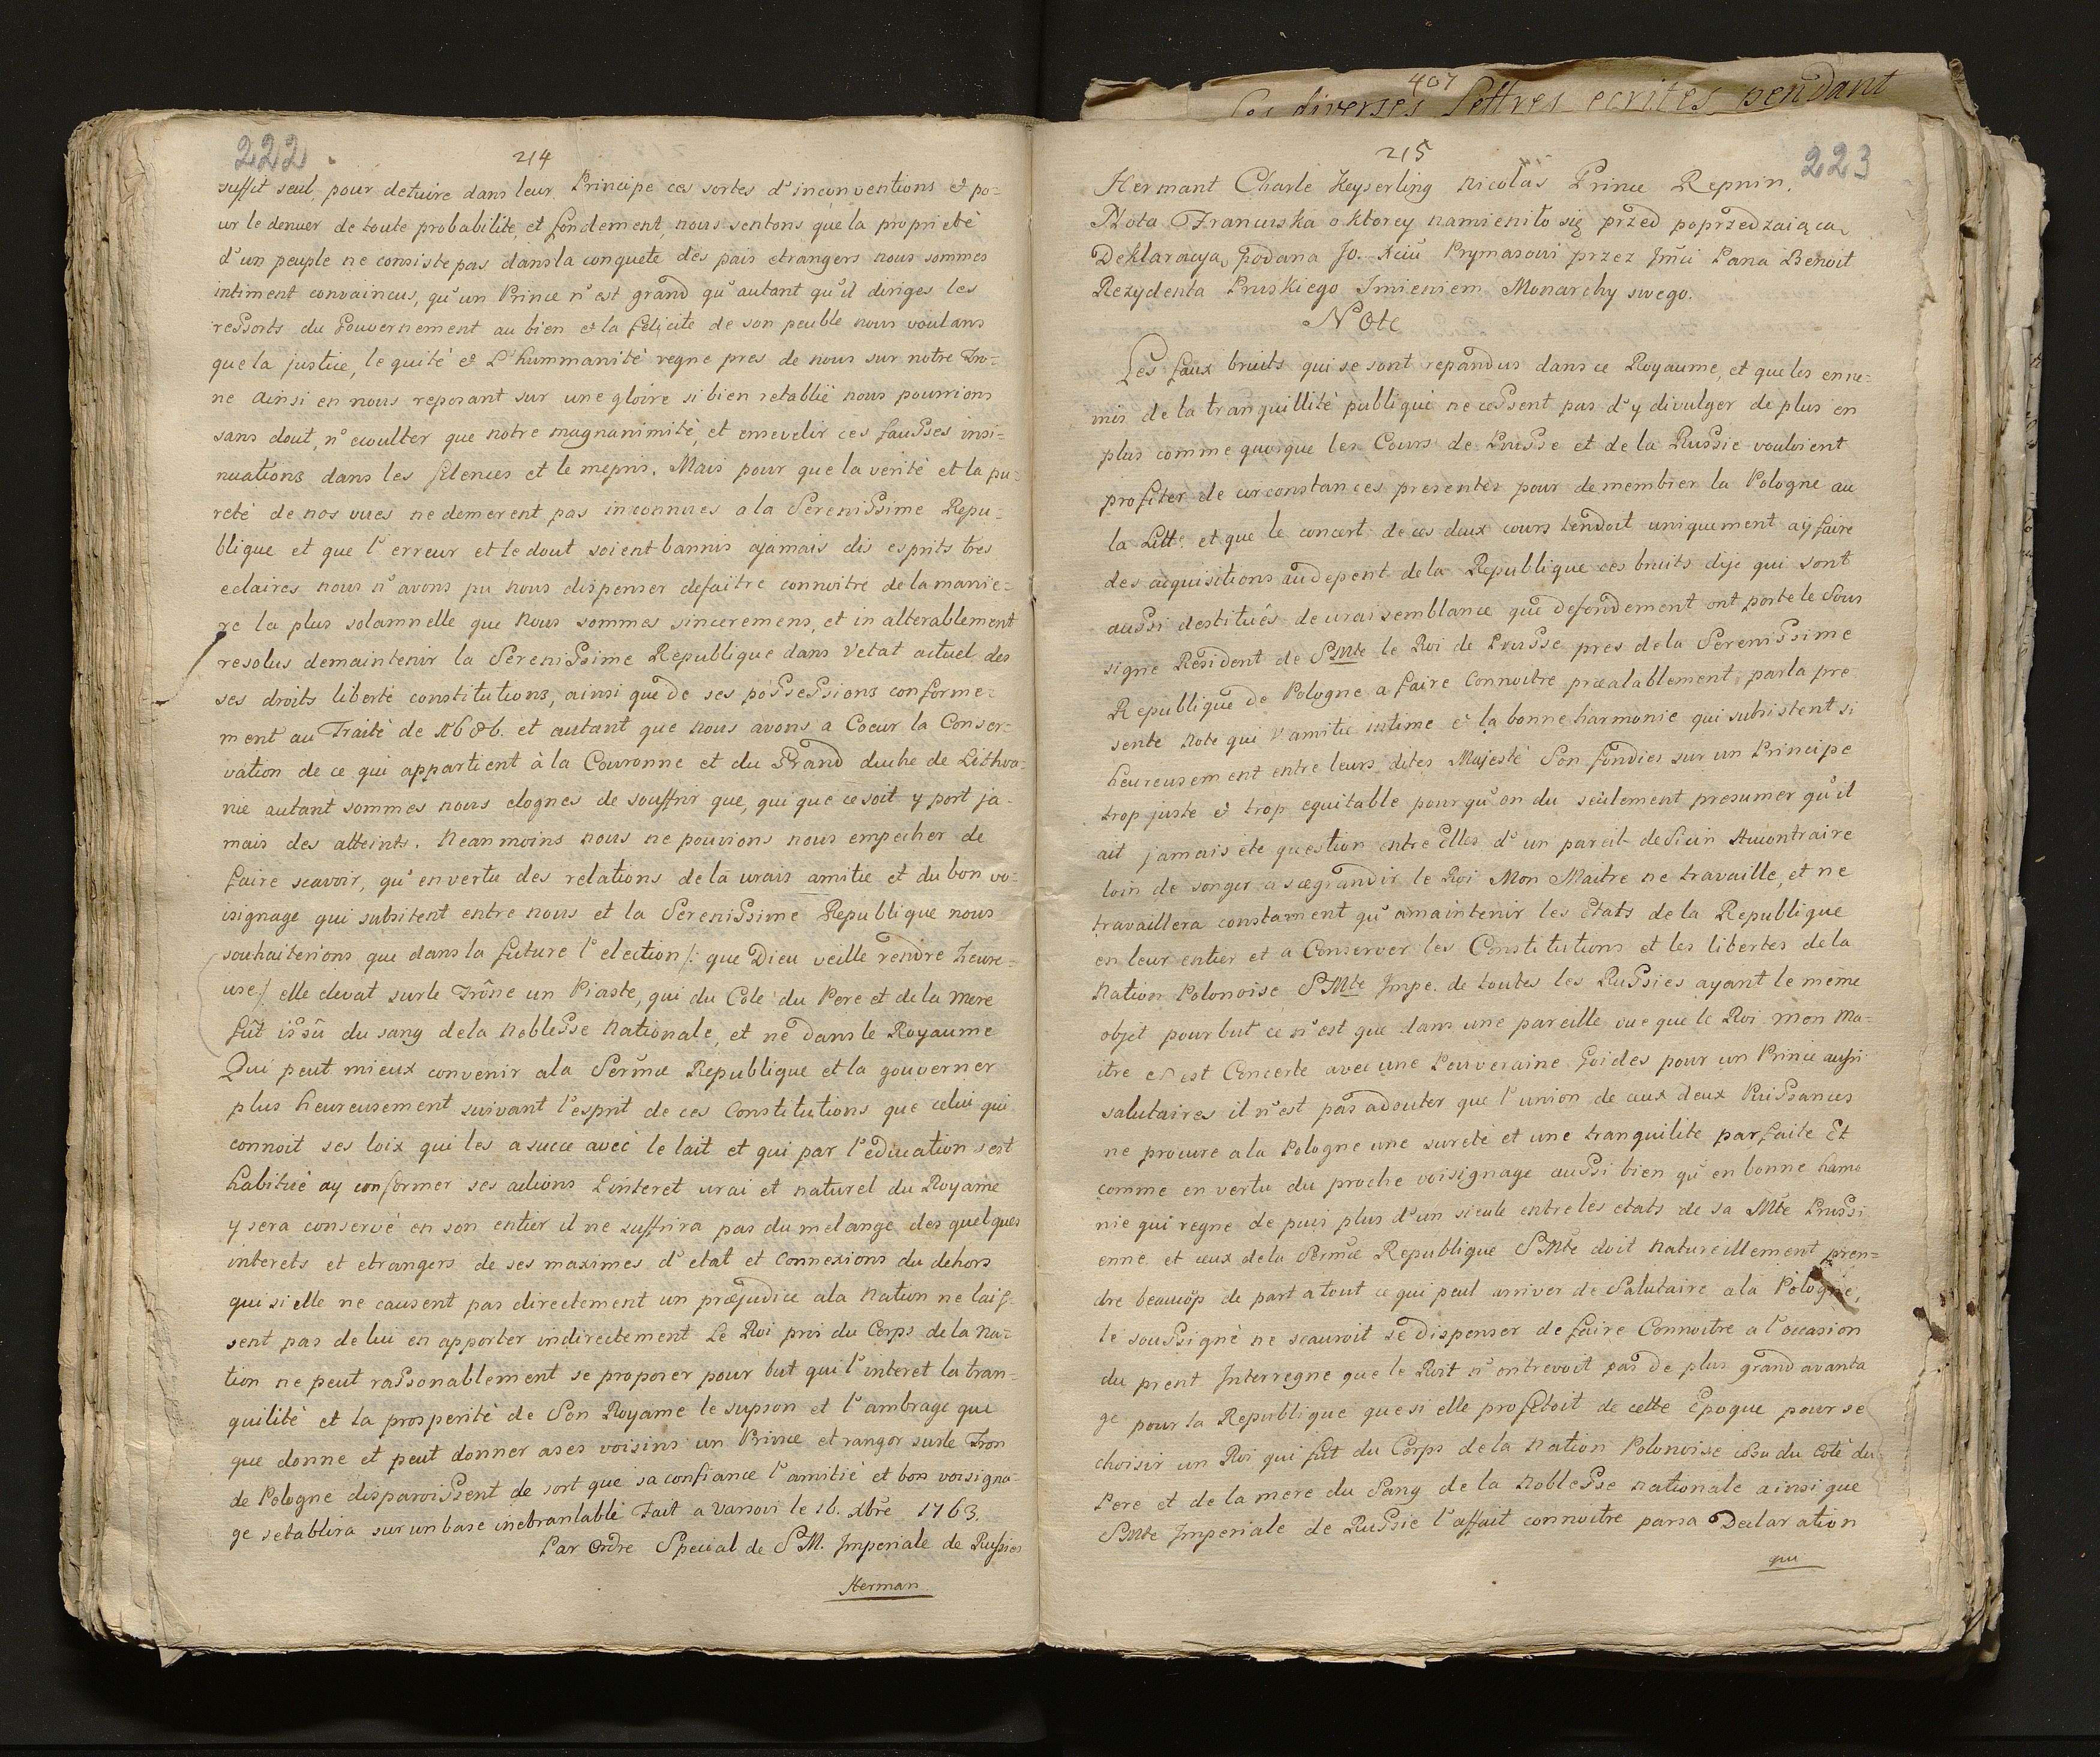 222.
214
suffit seul, pour detuire dans leur Principe ces sortes d'inconventions et po=
ur le denuer de toute probabilite, et fondement, nous sentons que la proprietè
d'un peuple ne consiste pas dans la conquete des pais etrangers nous sommes
intiment convaincus, qu'un Prince n'est grand qu'autant qu'il diriges les
ressorts du Gouvernement au bien et la felicite de son peuble nous voulans
que la justice, le quitè et L'hummanitè regne pres de nous sur notre Tro=
ne Ainsi en nous reposant sur une gloire si bien retabliè nous pourrions
sans dout, n'ecoulter que notre magnanimitè, et ensevelir ces fausses insi=
nuations dans les silences et le mepris. Mais pour que la veritè et la pu=
retè de nos vues ne demerent pas inconnues a la Serenissime Repu=
blique et que l'erreur et le dout soient bannis ajamais dis esprits tres
eclaires nous n'avons pu nous dispenser defaitre connoitre de la manie=
re la plus solamnelle que Nous sommes sinceremens, et in alterablement
resolus demaintenir la Serenissime Republique dans l'etat actuel des
ses droits libertè constitutions, ainsi que de ses possessions conforme=
ment au Traitè de 1686. et autant que nous avons a Coeur la Conser=
vation de ce qui appartient à la Couronne et du Grand duche de Lithva=
nie autant sommes nous elognes de souffrir que, qui que ce soit y port ja=
mais des atteints. Neanmoins nous ne pouvions nous empecher de
faire scavoir, qu'en vertu des relations de la vrais amitie et du bon vo=
isignage qui subsitent entre nous et la Serenissime Republique nous
souhaiterions que dans la future l'election /: que Dieu veille rendre heure=
use / elle elevat sur le Trône un Piaste, qui du Cote du Pere et de la mere
fût issû du sang de la Noblesse Nationale, et nè dans le Royaume
Qui peut mieux convenir ala Serme Republique et la gouverner
plus heureusement suivant l'esprit de ces Constitutions que celui qui
connoit ses loix qui les a succe avec le lait et qui par l'education sest
habituè ay conformer ses actions L'interet vrai et naturel du Royame
y sera conservè en son entier il ne suffrira pas du melange des quelques
interets et etrangers de ses maximes d'etat et Connexions du dehors
qui si elle ne causent pas directement un præjudice ala Nation ne lais=
sent pas de lui en apporter indirectement Le Roi pris du Corps de la Na=
tion ne peut rassonablement se proposer pour but qui l'interet la tran=
quilitè et la prosperitè de Son Royame le supson et l'ambrage que
que donne et peut donner ases voisins un Prince etrangor surle Tron
de Pologne disparoissent de sort que sa confiance l'amitiè et bon voisigna=
ge setablira sur un base inebranlablè Fait a Varsovi le 16. xbre 1763.
Par Ordre Special de S M. Imperiale de Russies
Herman
407
Les diverses Lettres ecrites pendant
215
223
Hermant Charle Keyserling Nicolas Prince Repnin.
Nota Francuska o ktorey namieniło się przed poprzedzaiącą
Deklaracyą, podana Jo. Xciu Prymasowi przez Jmci Pana Benoit
Rezydenta Pruskiego Imieniem Monarchy swego.
Note
Les faux bruits qui se sont repandus dans ce Royaume, et que les enne=
mis de la tranquillitè publiqui ne cessent pas d'y divulger de plus en
plus comme quoique les Cours de Prusse et de la Russie vouloient
profiter de circonstances presentes pour demembrer la Pologne au
la Litt: et que le concert de ces deux cours tendoit uniquement aÿ faire
des acquisitions audepent de la Republique ces bruits dije qui sont
aussi destituès de vraisemblance que defondement ont porte le Sous
signe Resident de S Mte le Roi de Prusse pres dela Serenissime
Republique de Pologne a faire Connoitre præalablement parla pre
sente Note qui l'amitie intime et la bonne harmonie qui subsistent si
heureusement entre leurs dites Majestè Son fondies sur un Principe
trop juste et trop equitable pour qu'on du seulement presumer qu'il
ait jamais ete question entre Elles d'un pareil desiein Aucontraire
loin de songer a s'aegrandir le Roi Mon Maitre ne travaille, et ne
travaillera constament qu'amaintenir les Etats de la Republique
en leur entier et a Conserver les Constitutions et les libertes de la
Nation Polonoise S Mte Impe. de toutes les Russies ayant le mème
objet pour but ce n'est que dans une pareille vue que le Roi mon Ma=
itre est Concerte avec une Souveraine Goides pour un Prince aussi
salutaires il n'est pas adouter que l'union de ceux deux Puissances
ne procure ala Pologne une suretè et une tranquilite parfaite Et
comme en vertu du proche voisignage aussi bien qu'en bonne harmo
nie qui regne de puis plus d'un siecle entre les etats de sa Mte Prussi
enne et ceux dela Serme Republique S Mte doit naturellement pren=
dre beaucop de part atout ce qui peut arriver de Salutaire ala Pologne,
le soussignè ne scauroit se dispenser de faire Connoitre a l'occasion
du prent Interregne que le Roit n'ontrevoit pas de plus grand avanta
ge pour la Republique que si elle profitoit de cette Epoque pour se
choisir un Roi qui fut du Corps de la Nation Polonoise issu du cotè du
Pere et de la mere du Sang de la Noblesse Nationale ainsi que
S Mte Imperiale de Russie l'affait connoitre parsa Declaration
qu